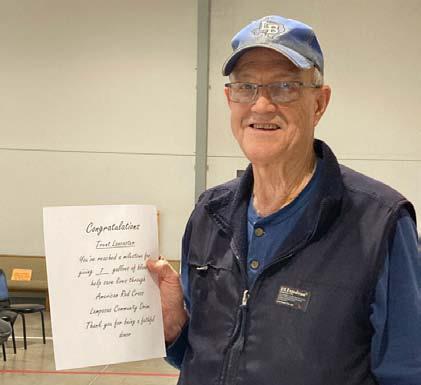 Congratulations
Trent Lancaster
You've reached a milestone for
giving 7 gallons of blood
help save lives through
American Red Cross
Lampasas Community Drive
Thank you for being a faithful
donor